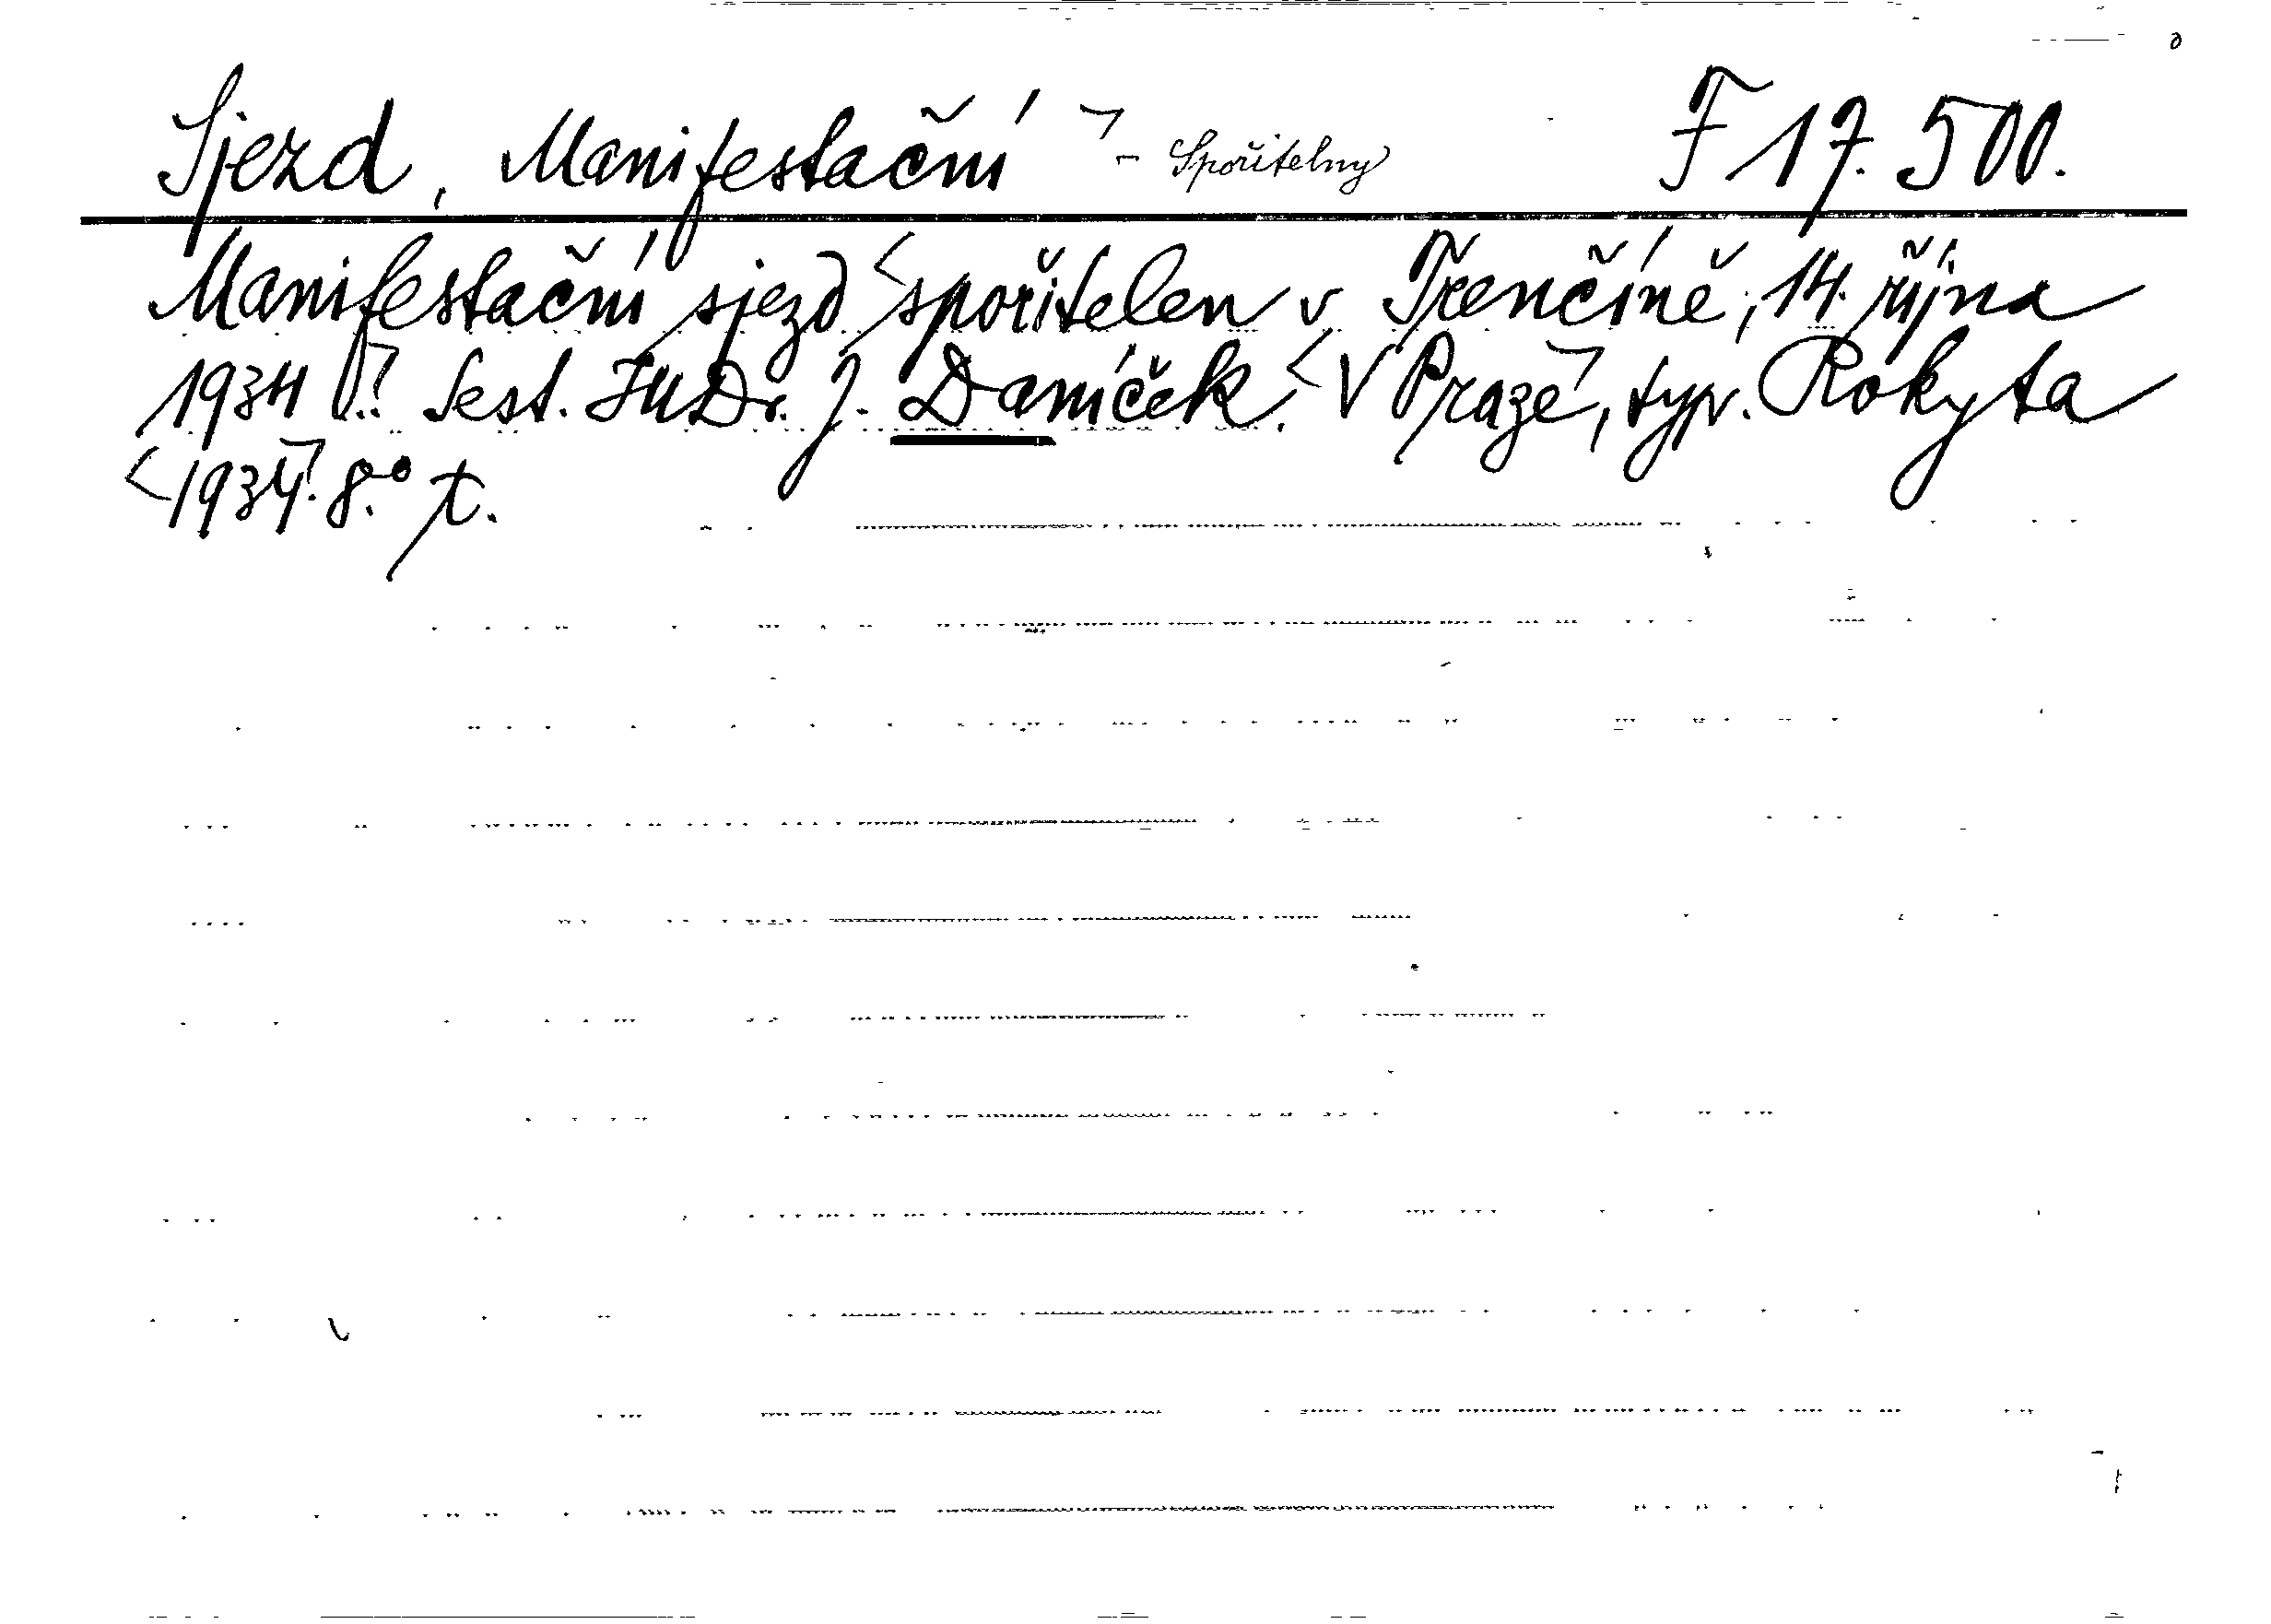 Sjezd, Manifestační ¬ - Spořitelny F 17.500.
Manifestační sjezd <spořitelen v Trenčíně, 14. října
1934 ... Sest. JUDr. J. Daníček. <V Praze¬, typ. Rokyta
<1934¬. 8.° t.